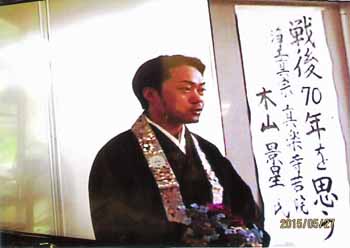 戦後70年を思う
浄土真宗 真楽寺住職
木山景星氏
2015/05/27